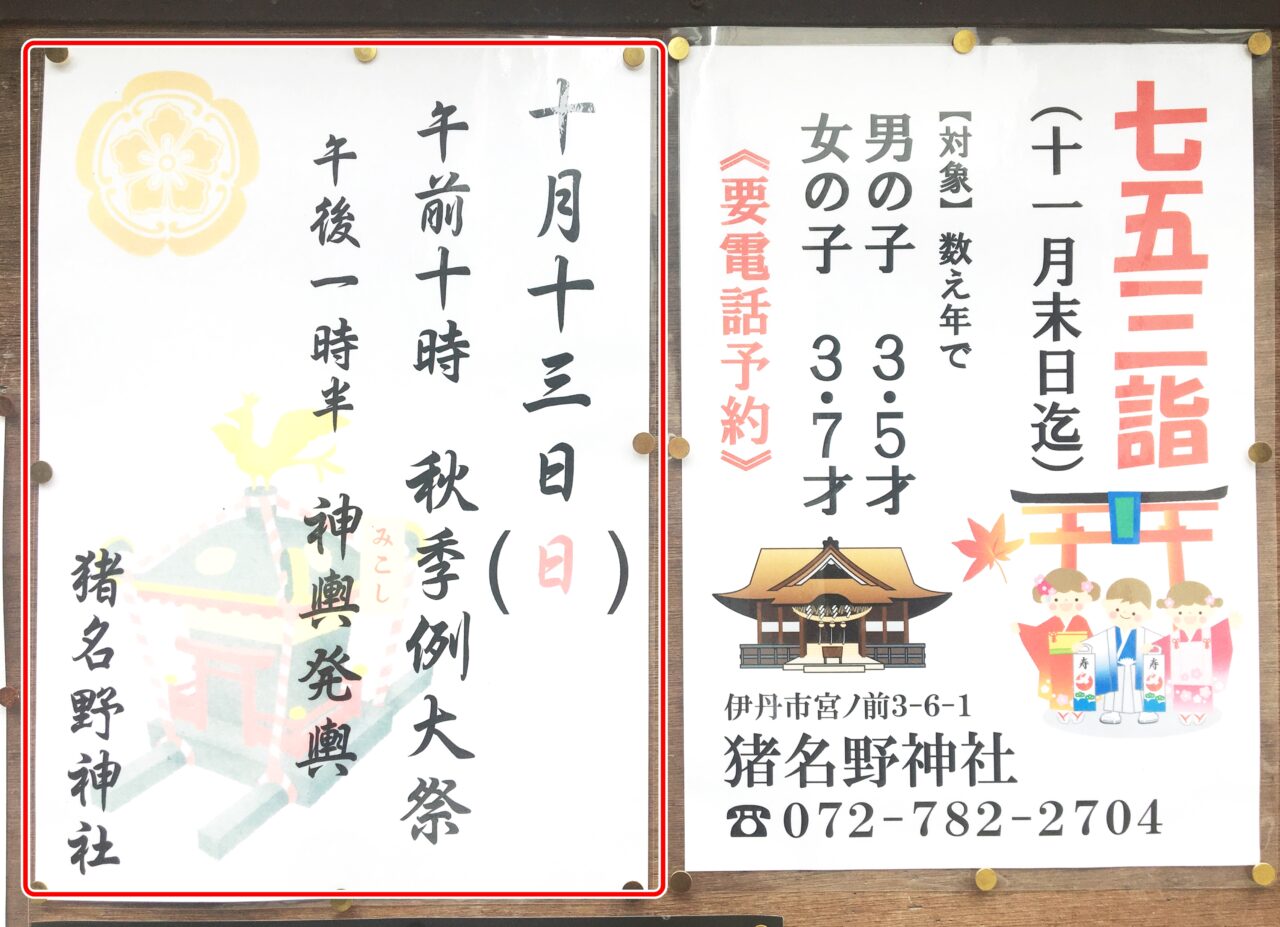 十月十三日(日)
午前十時 秋季例大祭
午後一時半 神輿発輿
みこし
猪名野神社
七五三詣
(十一月末日迄)
【対象】数え年で
男の子 3・5才
女の子 3・7才
《要電話予約》
寿
寿
伊丹市宮ノ前3-6-1
猪名野神社
☎072-782-2704